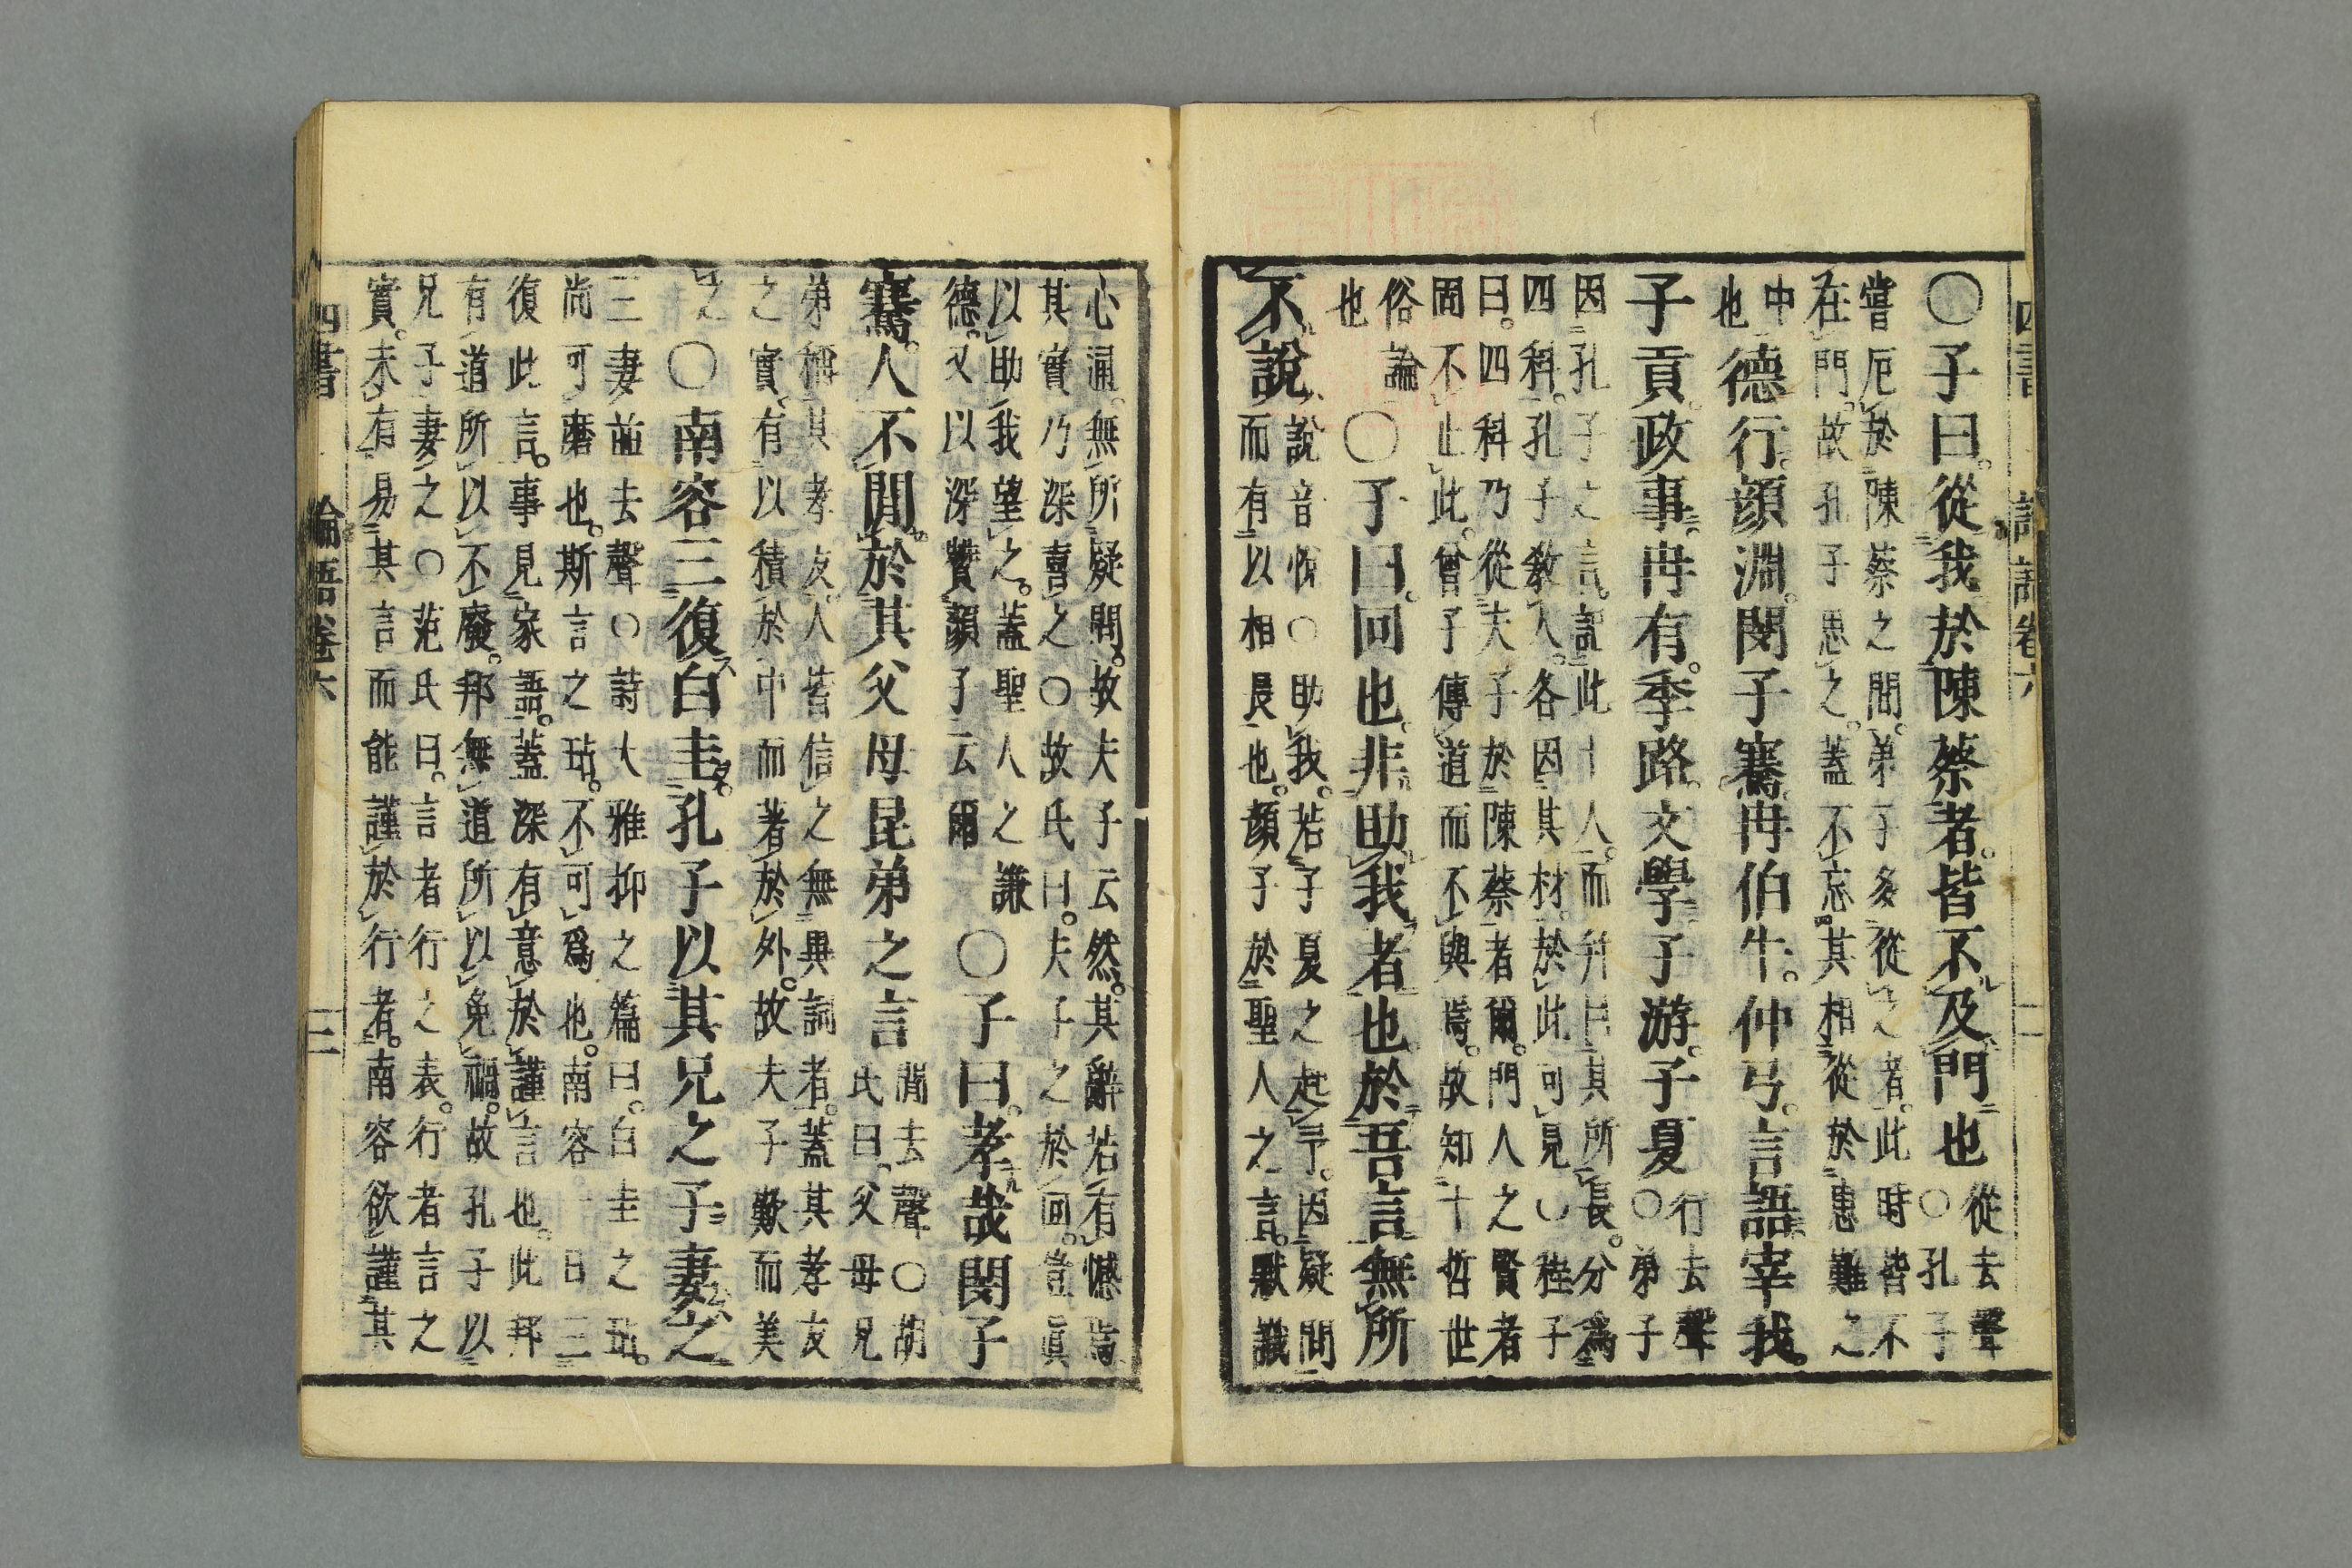 四書 論語卷六 二
〇子曰。從我於陳蔡者。皆不及門也 從去聲〇孔子
嘗厄於陳蔡之間。弟子多從之者。此時皆不
在門。故孔子思之。蓋不忘其相從於患難之
中也 德行。顏淵。閔子騫。冉伯牛。仲弓。言語。宰我。
子貢。政事。冉有。季路。文學。子游。子夏 行去聲〇弟子
因孔子之言。記此十人。而幷目其所長。分爲
四科。孔子教人。各因其材。於此可見〇程子
曰。四科乃從夫子於陳蔡者爾。門人之賢者
固不止此。曾子傳道而不與焉。故知十哲世
俗論也 〇子曰。回也。非助我者也。於吾言無所
不說 說音悅〇助我。若子夏之起予。因疑問
而有以相長也。顏子於聖人之言。默識
心通。無所疑問。故夫子云然。其辭若有憾焉
其實乃深喜之〇胡氏曰。夫子之於回。豈眞
以助我望之。蓋聖人之謙
德。又以深贊顏子云爾 〇子曰。孝哉閔子
騫。人不閒。於其父母昆弟之言 閒去聲〇胡氏曰。父母兄
弟稱其孝友。人皆信之無異詞者。蓋其孝友
之實。有以積於中而著於外。故夫子歎而美
之 〇南容三復白圭。孔子以其兄之子妻之
三妻並去聲〇詩大雅抑之篇曰。白圭之玷。
尚可磨也。斯言之玷。不可爲也。南容一日三
復此言。事見家語。蓋深有意於謹言也。此邦
有道所以不廢。邦無道所以免禍。故孔子以
兄子妻之〇范氏曰。言者行之表。行者言之
實。未有易其言而能謹於行者。南容欲謹其
四書 論語卷六 三